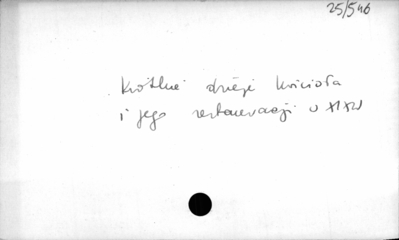 25/546
Krótkie dzieje kościoła
i jego restauracji w XIX w